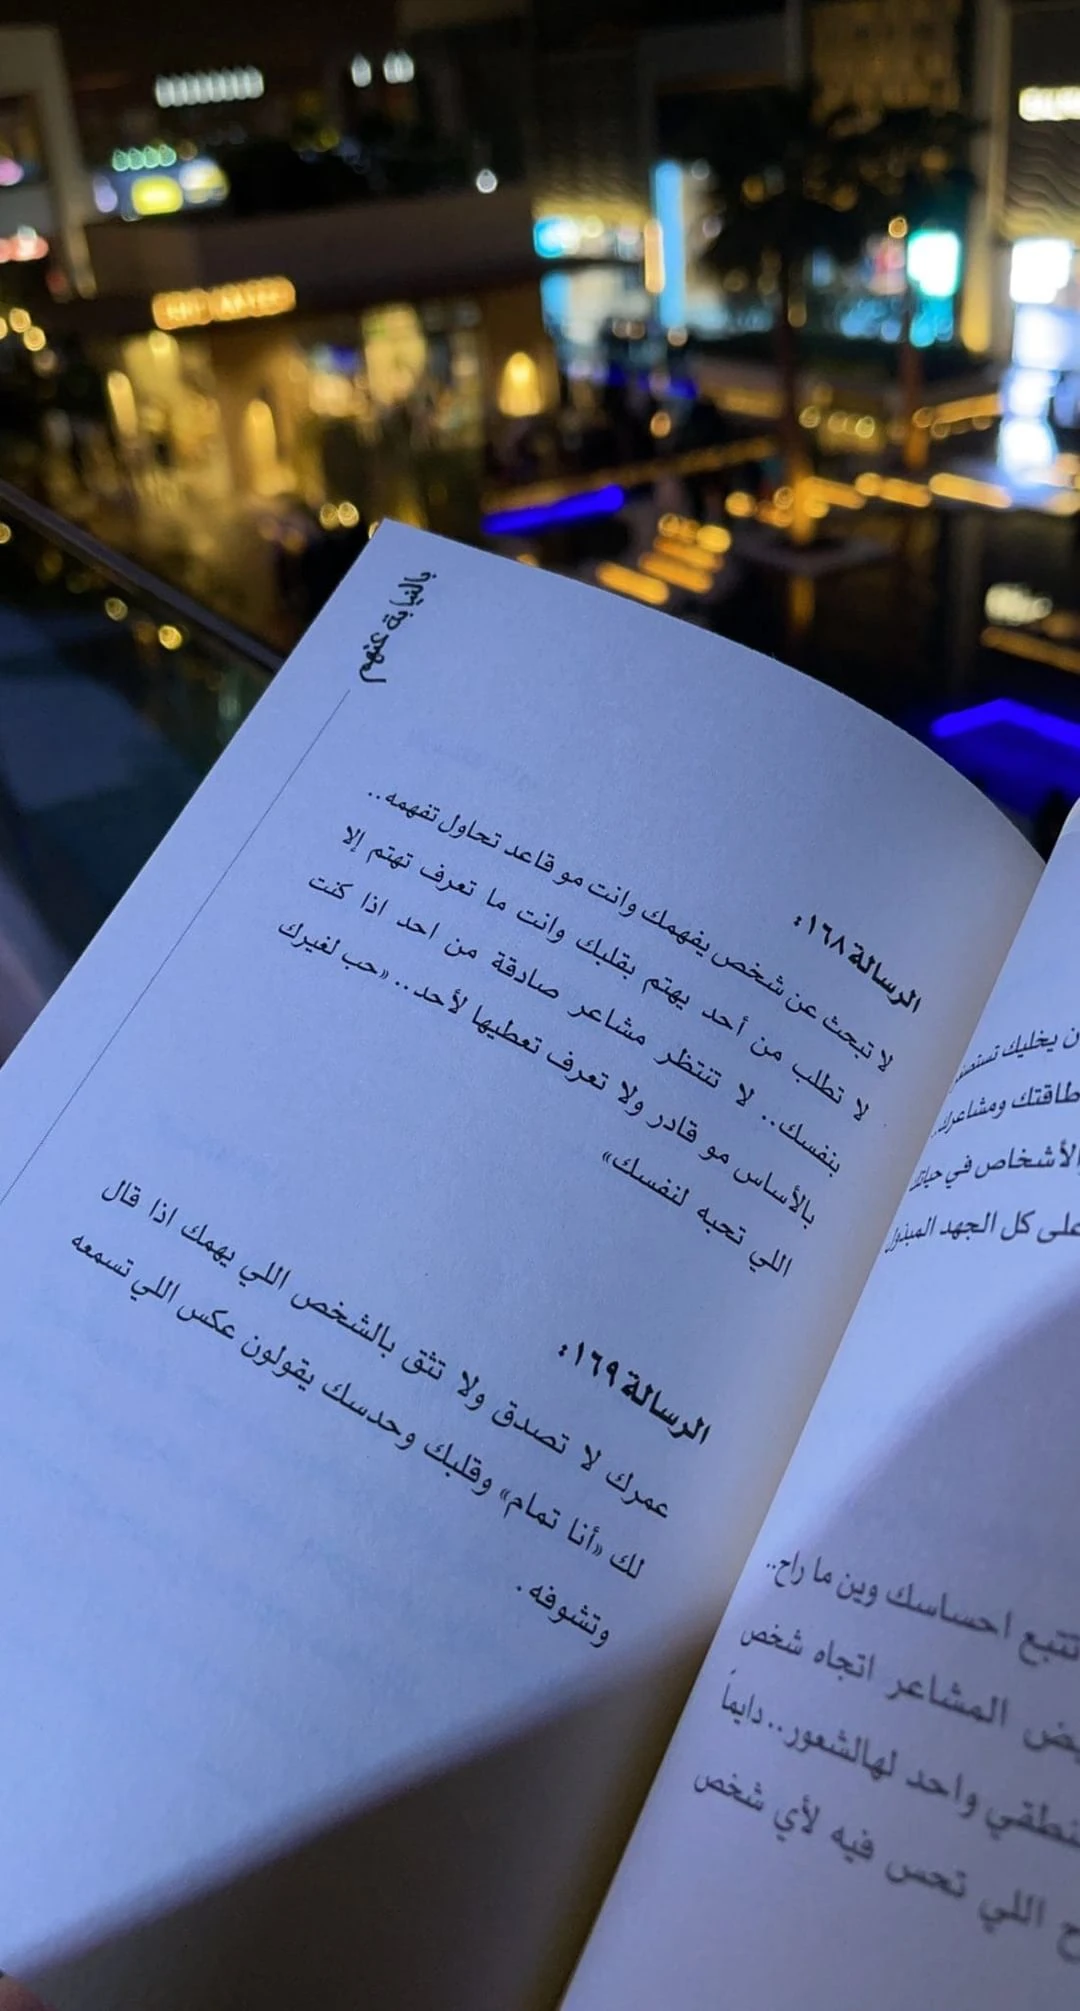 بالنيابة عنهم
الرسالة ١٦٨:
لا تبحث عن شخص يفهمك وانت مو قاعد تحاول تفهمه..
لا تطلب من أحد يهتم بقلبك وانت ما تعرف تهتم إلا
بنفسك.. لا تنتظر مشاعر صادقة من احد اذا كنت
بالأساس مو قادر ولا تعرف تعطيها لأحد.. «حب لغيرك
اللي تحبه لنفسك»
الرسالة ١٦٩:
عمرك لا تصدق ولا تثق بالشخص اللي يهمك اذا قال
لك «أنا تمام» وقلبك وحدسك يقولون عكس اللي تسمعه
وتشوفه.
يخليك
طاقتك ومشاعرك..
الأشخاص في حياتك
على كل الجهد المبذول
تتبع احساسك وين ما راح..
المشاعر اتجاه شخص
واحد لهالشعور.. دايماً
اللي تحس فيه لأي شخص